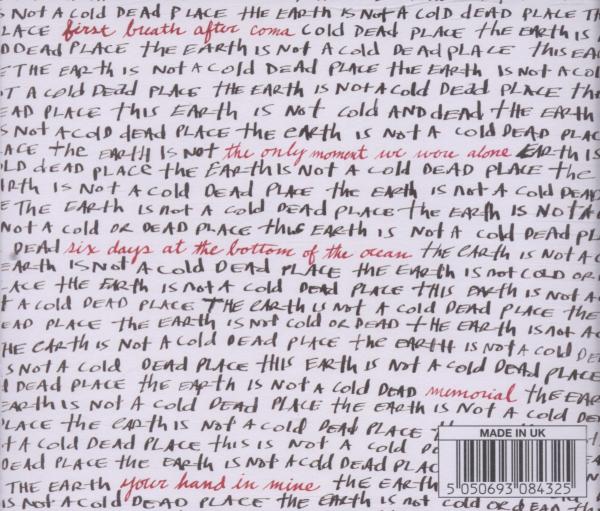 S NOT A COLD DEAD PLACE THE EARTH IS NOT A COLD DEAD PLACE TH
LACE first breath after coma COLD DEAD PLACE THE EARTH IS A
D DEAD PLACE THE EARTH IS NOT A COLD DEAD PLACE THIS EA
E THE EARTH IS NOT A COLD DEAD PLACE THE EARTH IS NOT A COL
T A COLD DEAD PLACE THE EARTH IS NOT A COLD DEAD PLACE TH
EAD PLACE THIS EARTH IS NOT COLD AND DEAD THE EARTH
S NOT A COLD DEAD PLACE THE EARTH IS NOT A COLD DEAD PLAC
ACE THE EARTH IS NOT the only moment we were alone EARTH IS
OLD DEAD PLACE THE EARTH IS NOT A COLD DEAD PLACE THE
ARTH IS NOT A COLD DEAD PLACE THE EARTH IS NOT A COLD DEAD
E THE EARTH IS NOT A COLD DEAD PLACE THE EARTH IS NOT A
NOT A COLD OR DEAD PLACE THIS EARTH IS NOT A COLD DEAD PL
DEAD six days at the bottom of the ocean THE EARTH IS NOT A C
EARTH IS NOT A COLD DEAD PLACE THE EARTH IS NOT COLD OR
LACE THE EARTH IS NOT A COLD DEAD PLACE THIS EARTH IS NOT A
T A COLD DEAD PLACE THE EARTH IS NOT A COLD DEAD PLACE THE
EAD PLACE THE EARTH IS NOT COLD OR DEAD THE EARTH IS NOT A
HE EARTH IS NOT A COLD DEAD PLACE THE EARTH IS NOT A COLD DE
S NOT A COLD DEAD PLACE THIS EARTH IS NOT A COLD DEAD PLACE
D DEAD PLACE THE EARTH IS NOT A COLD DEAD memorial THE EAR
EARTH IS NOT A COLD DEAD PLACE THE EARTH IS NOT A COLD DE
LACE THE EARTH IS NOT A COLD DEAD PLACE THE
T A COLD DEAD PLACE THIS IS NOT A COLD D
DEAD PLACE THE EARTH IS NOT A COLD DEAD PLAC
THE EARTH your hand in mine THE EARTH
IS NOT A COLD DEAD PLACE THE EARTH IS NOT COLD OR DEAD THE
MADE IN UK
5 050693 084325